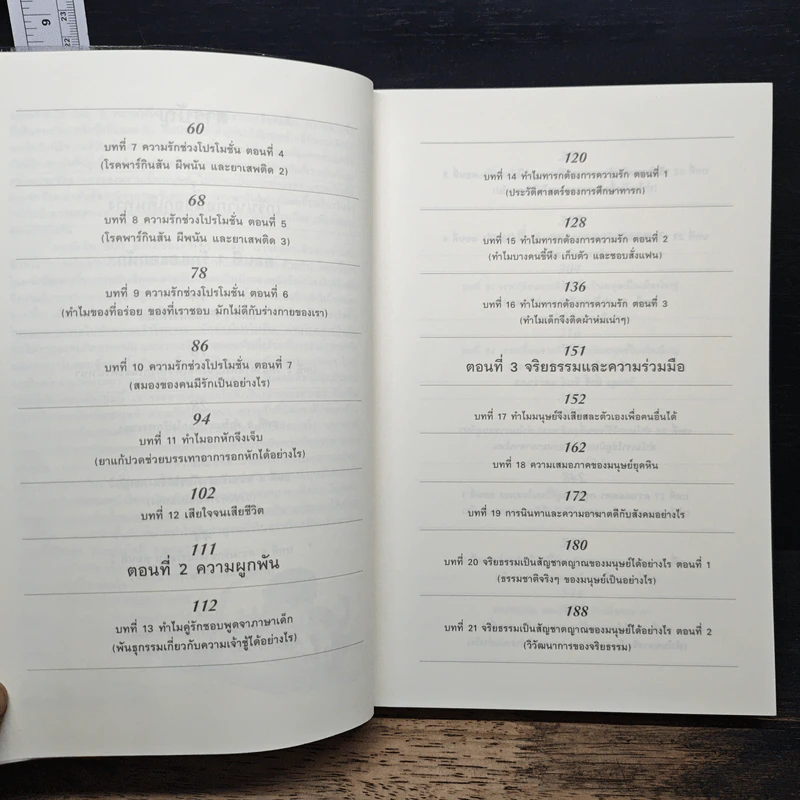 9
23
22
60
บทที่ 7 ความรักช่วงโปรโมชั่น ตอนที่ 4
(โรคพาร์กินสัน ผีพนัน และยาเสพติด 2)
68
บทที่ 8 ความรักช่วงโปรโมชั่น ตอนที่ 5
(โรคพาร์กินสัน ผีพนัน และยาเสพติด 3)
78
บทที่ 9 ความรักช่วงโปรโมชั่น ตอนที่ 6
(ทำไมของที่อร่อย ของที่เราชอบ มักไม่ดีกับร่างกายของเรา)
86
บทที่ 10 ความรักช่วงโปรโมชั่น ตอนที่ 7
(สมองของคนมีรักเป็นอย่างไร)
94
บทที่ 11 ทำไมอกหักจึงเจ็บ
(ยาแก้ปวดช่วยบรรเทาอาการอกหักได้อย่างไร)
102
บทที่ 12 เสียใจจนเสียชีวิต
111
ตอนที่ 2 ความผูกพัน
112
บทที่ 13 ทำไมคู่รักชอบพูดจาภาษาเด็ก
(พันธุกรรมเกี่ยวกับความเจ้าชู้ได้อย่างไร)
120
บทที่ 14 ทำไมทารกต้องการความรัก ตอนที่ 1
(ประวัติศาสตร์ของการศึกษาทารก)
128
บทที่ 15 ทำไมทารกต้องการความรัก ตอนที่ 2
(ทำไมบางคนขี้หึง เก็บตัว และชอบสั่งแฟน)
136
บทที่ 16 ทำไมทารกต้องการความรัก ตอนที่ 3
(ทำไมเด็กจึงติดผ้าห่มเน่าๆ)
151
ตอนที่ 3 จริยธรรมและความร่วมมือ
152
บทที่ 17 ทำไมมนุษย์จึงเสียสละตัวเองเพื่อคนอื่นได้
162
บทที่ 18 ความเสมอภาคของมนุษย์ยุคหิน
172
บทที่ 19 การนินทาและความอาฆาตดีกับสังคมอย่างไร
180
บทที่ 20 จริยธรรมเป็นสัญชาตญาณของมนุษย์ได้อย่างไร ตอนที่ 1
(ธรรมชาติจริงๆ ของมนุษย์เป็นอย่างไร)
188
บทที่ 21 จริยธรรมเป็นสัญชาตญาณของมนุษย์ได้อย่างไร ตอนที่ 2
(วิวัฒนาการของจริยธรรม)